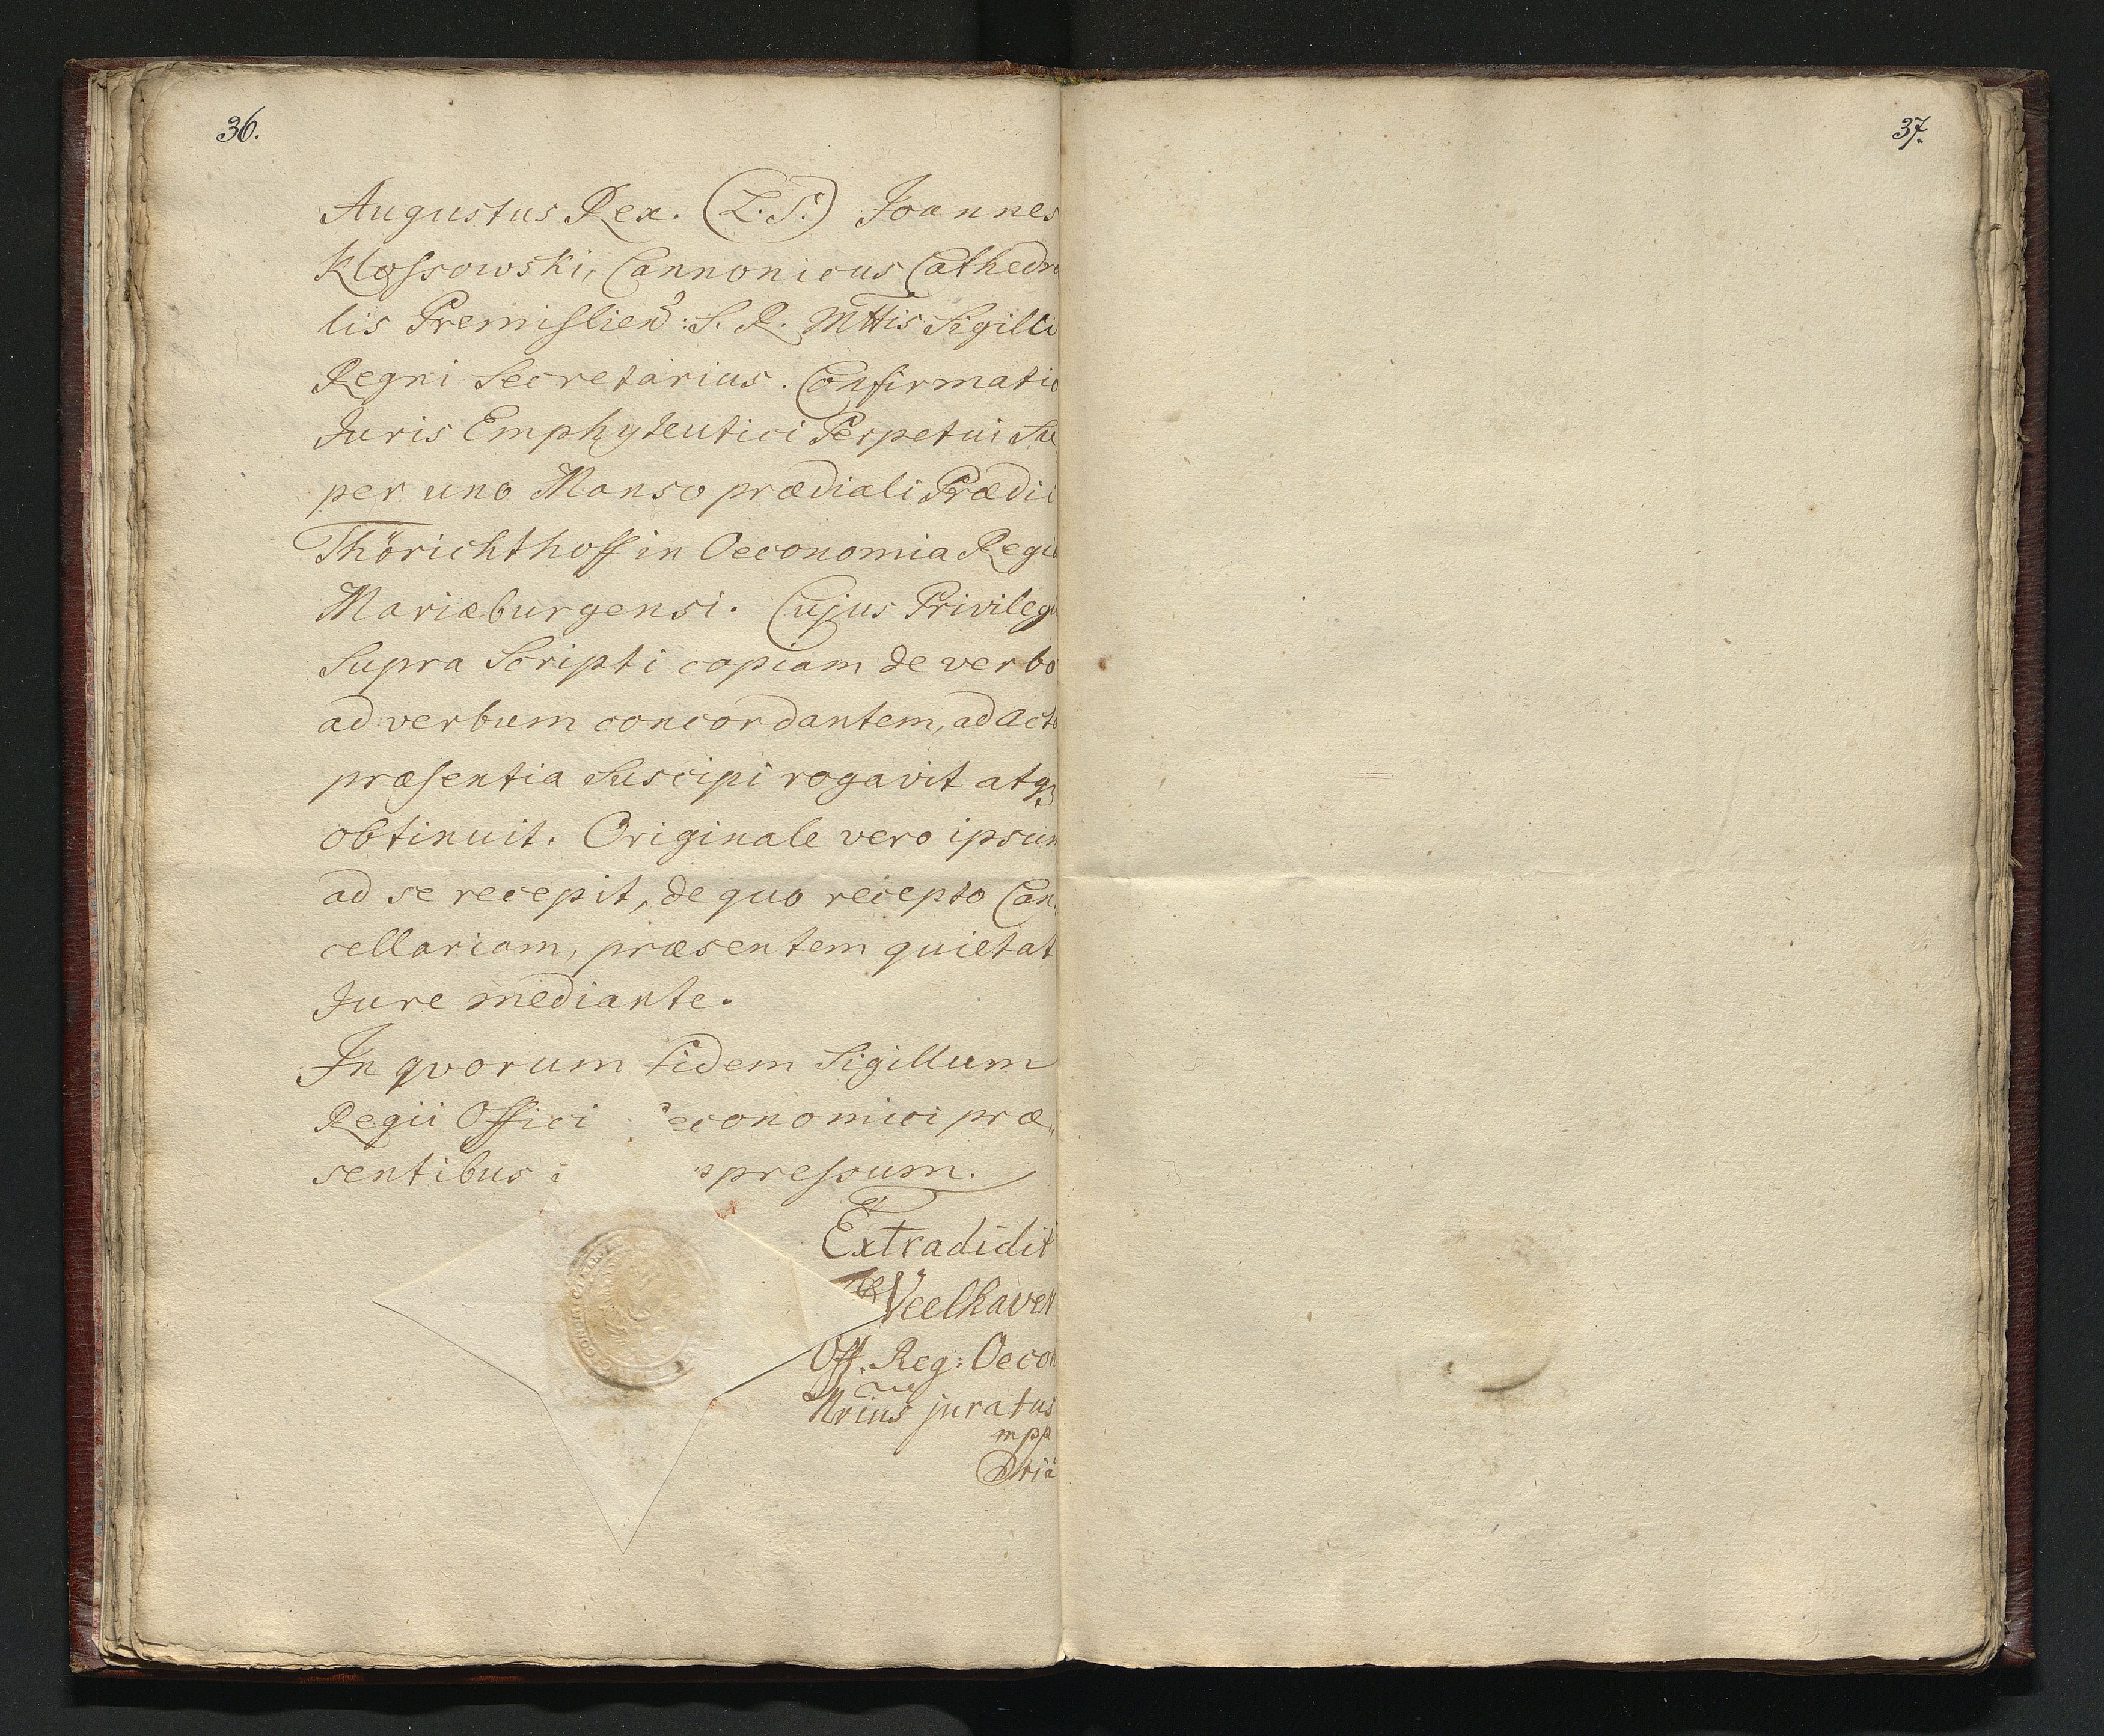 36.
Augustus Rex. (L.S.) Joannes
Klossowski, Cannonicus Cathedra
lis Premislien: S. R. Mttis Sigilli
Regni Secretarius. Confirmatio
Juris Emphyteutici Perpetui Su
per uno Manso prædiali Prædii
Thörichthoff in Oeconomia Regia
Mariæburgensi. Cujus Privilegi
Supra Scripti copiam de verbo
ad verbum concordantem, ad acta
præsentia Suscipi rogavit atq3
obtinuit. Originale vero ipsum
ad se recepit, de quo recepto Can
cellariam, præsentem quietat
Jure mediante.
In qvorum fidem Sigillum
Regii Offici economici præ„
sentibus pressum.
Extradidit
Veelhaven
Off. Reg: Oecon
Nrius juratus
mpp
37.